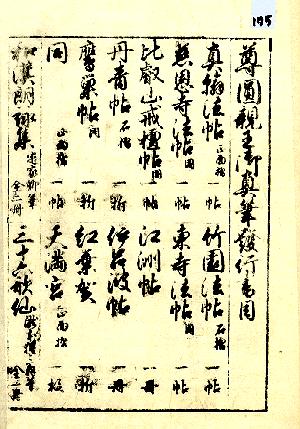 175
尊圓親王御真筆發行書目
真翰法帖 正面摺 一帖 竹園法帖 石摺 一帖
慈恩寺法帖 同 一帖 東寺法帖 同 一帖
比叡山戒壇帖 同 一帖 江洲帖 一冊
丹青帖 石摺 一折 伊呂波帖 一冊
鷹巣帖 同 一折 紅葉賀 一折
同 正面摺 一帖 天満宮 正面摺 一枚
和漢朗詠集 全二冊 三十六歌仙 全一冊